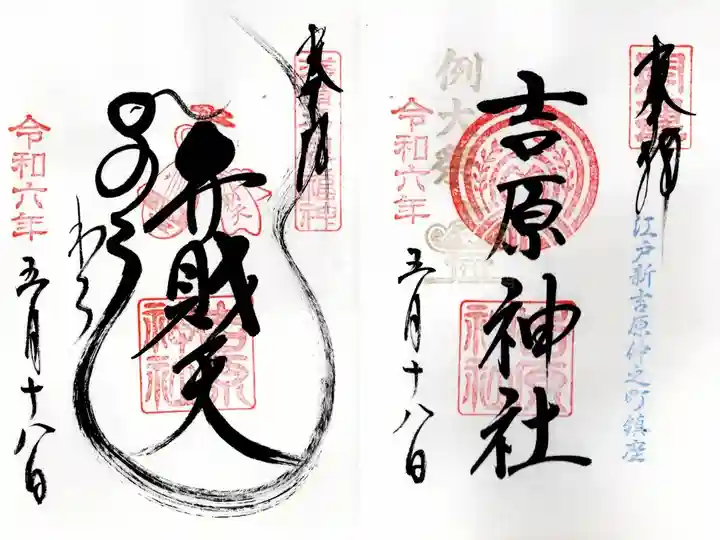 奉拝
開運
江戸新吉原仲之町鎮座
吉原神社
例大祭
吉原神社
令和六年
五月十八日
奉拝
弁財天
吉原神社
令和六年
五月十八日